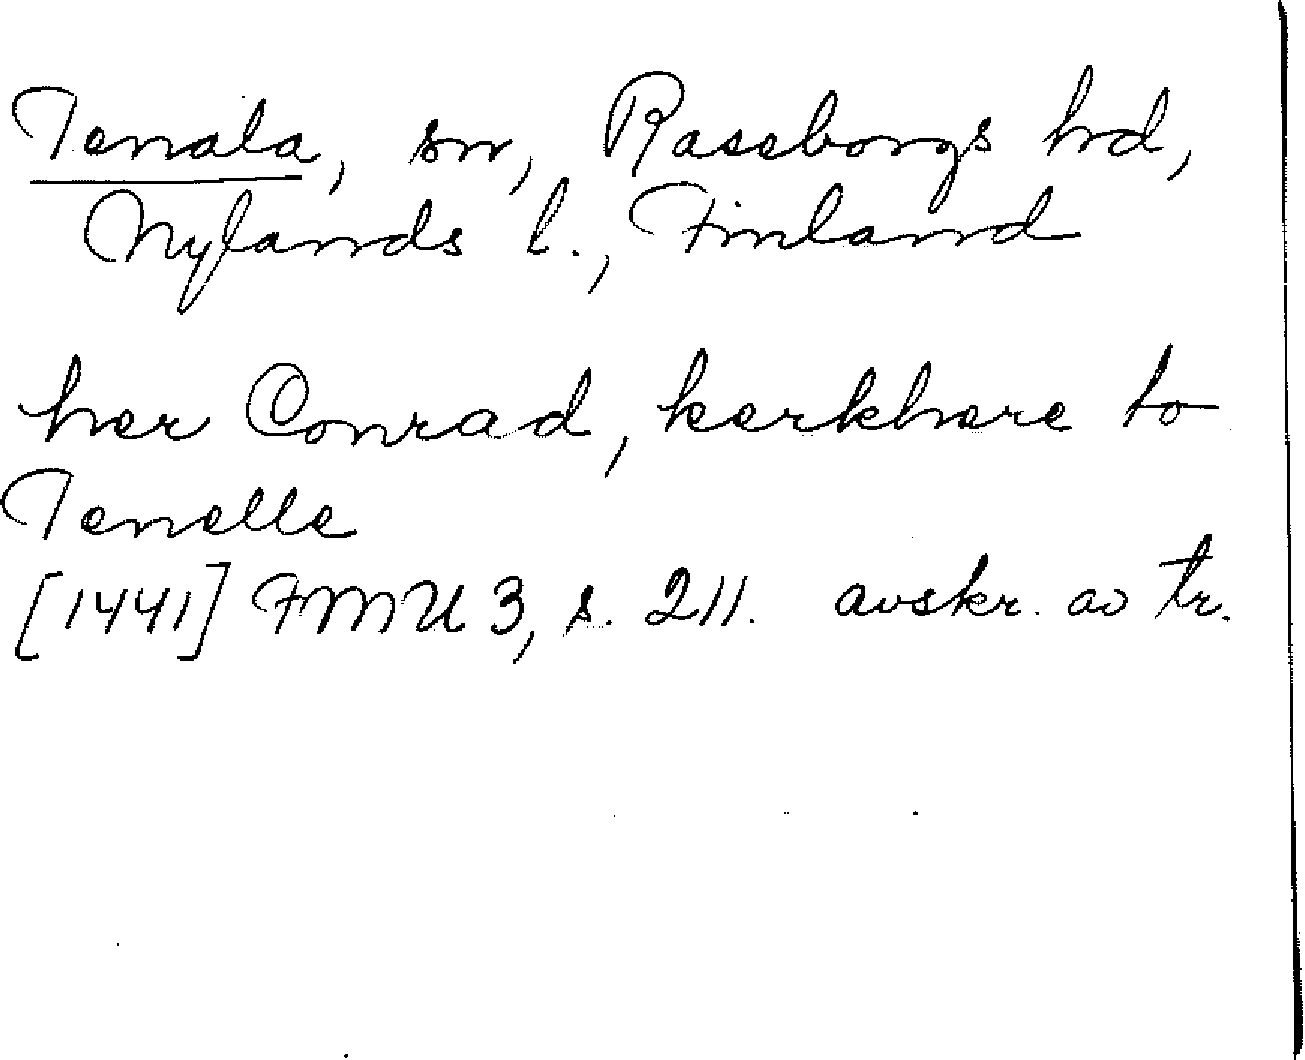 Tenala, sn, Raseborgs hd,
Nylands l., Finland
her Conrad, kerkhere to
Tenelle
[1441] FMU 3, s. 211. avskr. av tr.